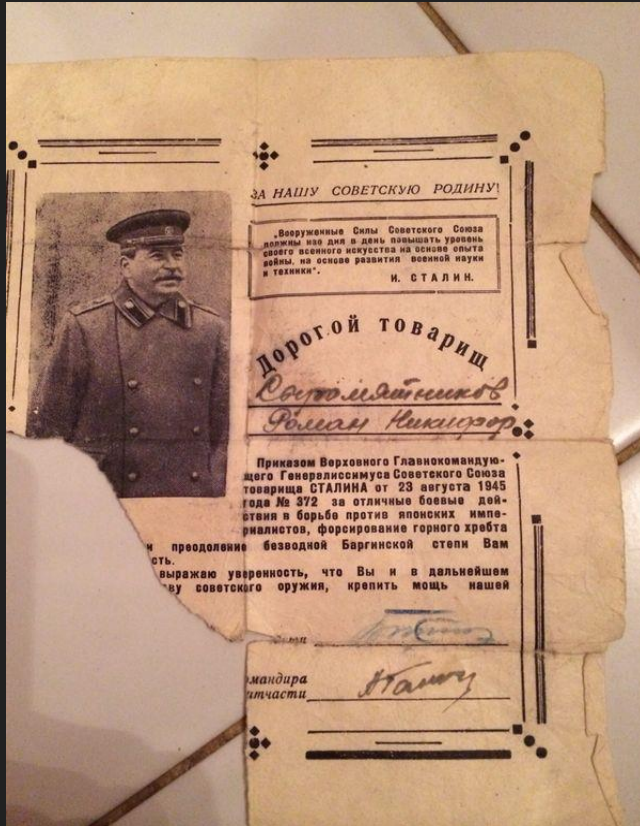 ЗА НАШУ СОВЕТСКУЮ РОДИНУ!
„Вооруженные Силы Советского Союза
должны изо дня в день повышать уровень
своего военного искусства на основе опыта
войны, на основе развития военной науки
и техники".
И. СТАЛИН.
Дорогой товарищ
Сыромятников
Роман Никифор
Приказом Верховного Главнокомандую-
щего Генералиссимуса Советского Союза
товарища СТАЛИНА от 23 августа 1945
года № 372 за отличные боевые дей-
ствия в борьбе против японских импе-
риалистов, форсирование горного хребта
и преодоление безводной Баргинской степи Вам
сть.
выражаю уверенность, что Вы и в дальнейшем
ву советского оружия, крепить мощь нашей
мандира
итчасти